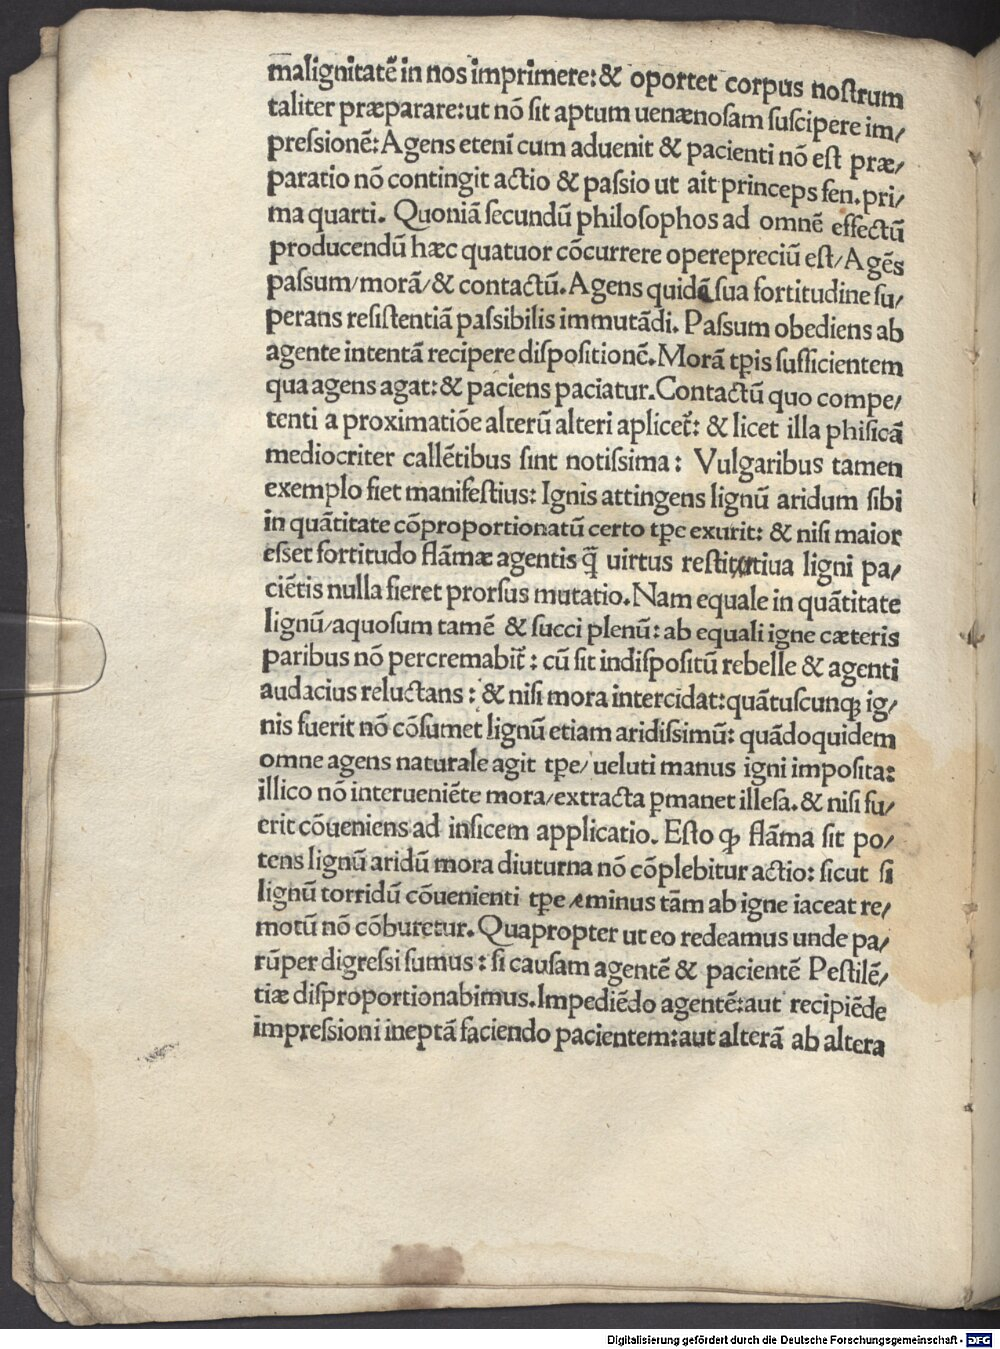 malignitatē in nos imprimere: & oportet corpus noſtrum
taliter præparare: ut nō ſit aptum uenænoſam ſuſcipere im/
preſſionē: Agens etenī cum aduenit & pacienti nō eſt præ/
paratio nō contingit actio & paſſio ut ait princeps fen. pri/
ma quarti. Quoniā ſecundū philoſophos ad omnē effectū
producendū hæc quatuor cōcurrere operepreciū eſt/ Agēs
paſſum/ morā/ & contactū. Agens quidā ſua fortitudine ſu/
perans reſiſtentiā paſſibilis immutādi. Paſſum obediens ab
agente intentā recipere diſpoſitionē. Morā tꝑis ſufficientem
qua agens agat: & paciens paciatur. Contactū quo compe/
tenti a proximatiōe alterū alteri aplicet̃: & licet illa phiſicā
mediocriter callētibus ſint notiſſima: Vulgaribus tamen
exemplo fiet manifeſtius: Ignis attingens lignū aridum ſibi
in quātitate cōproportionatū certo tꝑe exurit: & niſi maior
eſſet fortitudo flāmæ agentis q̃ uirtus reſtitutiua ligni pa/
ciētis nulla fieret prorſus mutatio. Nam equale in quātitate
lignū/ aquoſum tamē & ſucci plenū: ab equali igne cæteris
paribus nō percremabit̃: cū ſit indiſpoſitū rebelle & agenti
audacius reluctans: & niſi mora intercidat: quātuſcunqȝ ig/
nis fuerit nō cōſumet lignū etiam aridiſſimū: quādoquidem
omne agens naturale agit tꝑe/ ueluti manus igni impoſita:
illico nō interueniēte mora/ extracta ꝑmanet illeſa. & niſi fu/
erit cōueniens ad inſicem applicatio. Eſto qȝ flāma ſit po/
tens lignū aridū mora diuturna nō cōplebitur actio: ſicut ſi
lignū torridū cōuenienti tꝑe eminus tām ab igne iaceat re/
motū nō cōburetur. Quapropter ut eo redeamus unde pa/
rūper digreſſi ſumus: ſi cauſam agentē & pacientē Peſtilē/
tiæ diſproportionabimus. Impediēdo agentē: aut recipiēde
impreſſioni ineptā faciendo pacientem: aut alterā ab altera
Digitalisierung gefördert durch die Deutsche Forschungsgemeinschaft - DFG